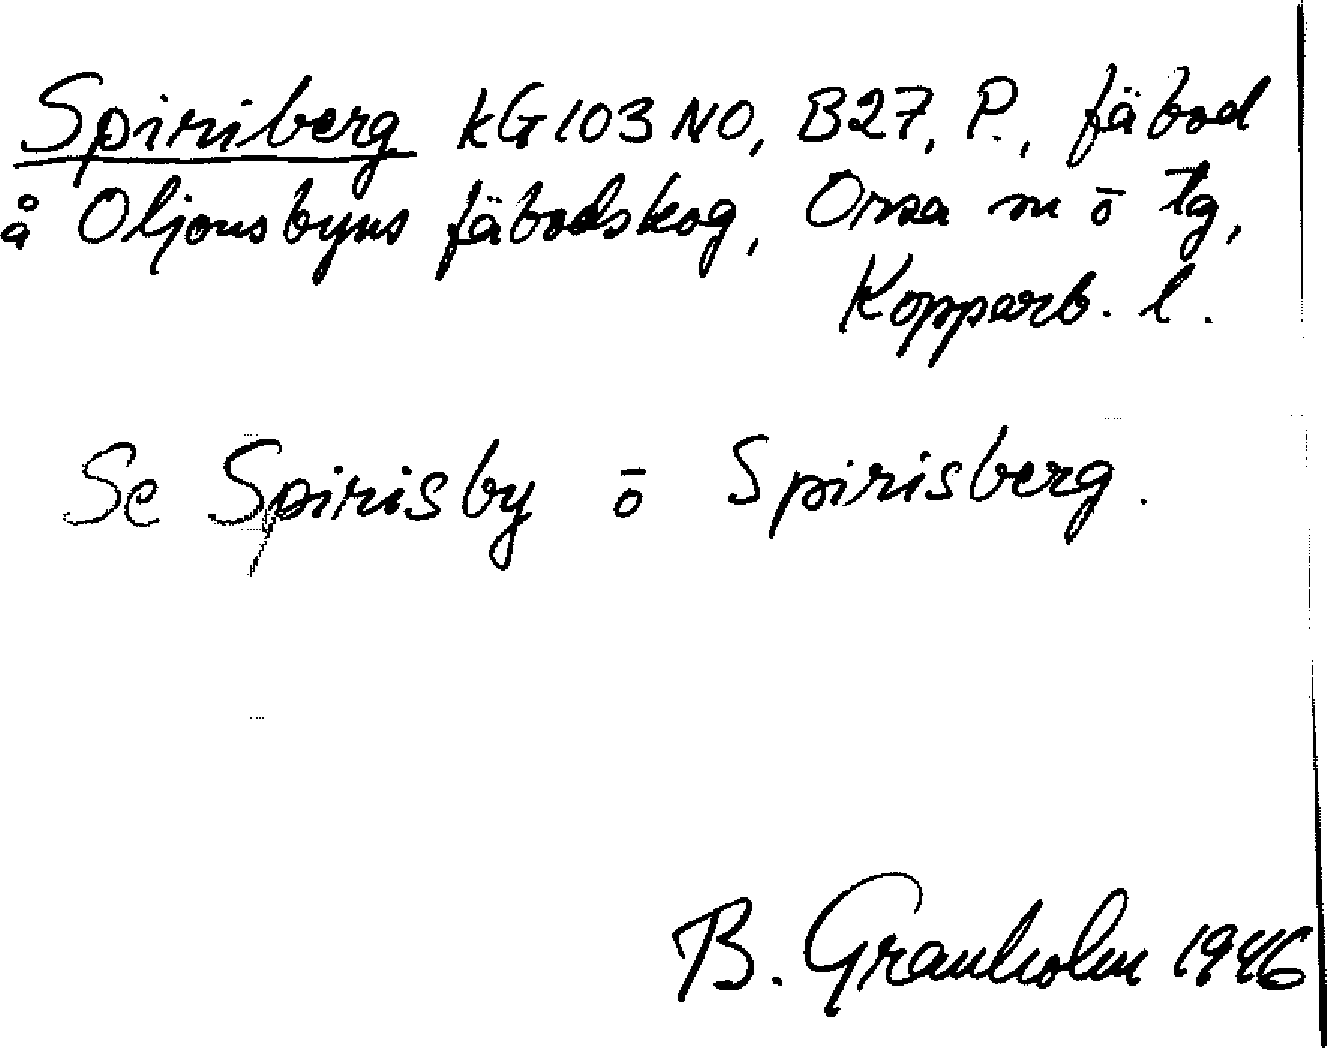 Spiriberg KG103NO, B27, P., fäbod
å Oljonsbyns fäbodskog, Orsa sn ō tg,
Kopparb. l.
Se Spirisby ō Spirisberg.
B. Granholm 1946